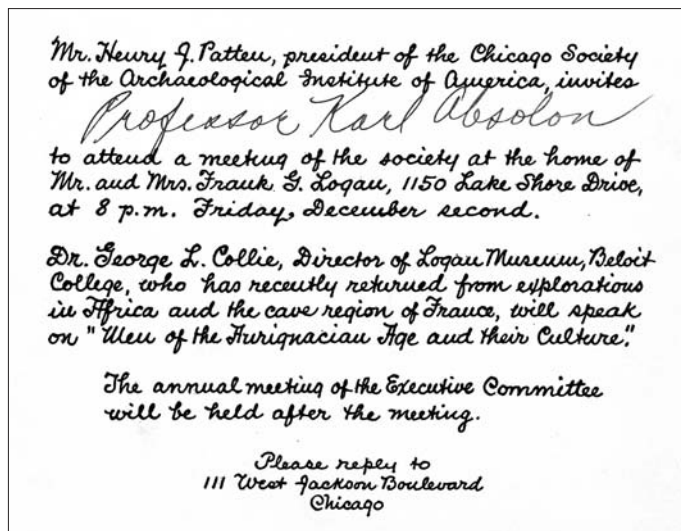 Mr. Henry J. Patten, president of the Chicago Society
of the Archaeological Institute of America, invites
Professor Karl Absolon
to attend a meeting of the society at the home of
Mr. and Mrs. Frank G. Logan, 1150 Lake Shore Drive,
at 8 p.m. Friday, December second.
Dr. George L. Collie, Director of Logan Museum, Beloit
College, who has recently returned from explorations
in Africa and the cave region of France, will speak
on "Men of the Aurignacian Age and their Culture."
The annual meeting of the Executive Committee
will be held after the meeting.
Please reply to
111 West Jackson Boulevard
Chicago